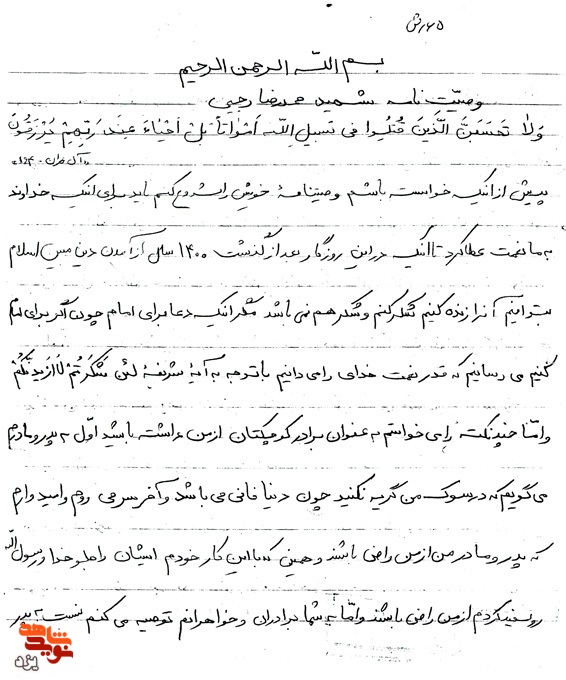 بسم اللّه الرحمن الرحیم
وصیّت نامه شهید حمیدرضا رجبی
وَلاٰ تَحسَبَنَّ الَّذینَ قُتِلُوا فی سَبیلِ اللّهِ اَمْواتاً بَلْ اَحْیٰاءٌ عِندَ رَبِّهِمْ یُرْزَقُونَ
آل عمران
پیش از اینکه خواسته باشم وصیتنامهٔ خویش را شروع کنم باید برای اینکه خداوند
به ما نعمت عطا کرد تا اینکه در این روزگار بعد از گذشت ۱۴۰۰ سال از آمدن دین مبین اسلام
بتوانیم آنرا زنده کنیم شکر کنیم و شکر هم نمی باشد مگر اینکه دعا برای امام چون اگر برای امام
کنیم می رسانیم که قدر نعمت خدای را می دانیم با توجه به آیهٔ شریفهٔ لئن شَکَرتُمْ لَاَزیدَنَّکُمْ
وامّا چند نکته را می خواستم به عنوان برادر کوچکتان از من داشته باشید اوّل به پدر و مادرم
می گویم که در سوگ من گریه نکنید چون دنیا فانی می باشد و آخر سر می روم و امیدوارم
که پدر و مادر من از من راضی باشند و همینی که با این کار خودم ایشان را جلو خدا و رسول اللّه
رو سفید کردم از من راضی باشند وامّا به شما برادران و خواهرانم توصیه می کنم نسبت به پدر
نوید شاهد
یزد